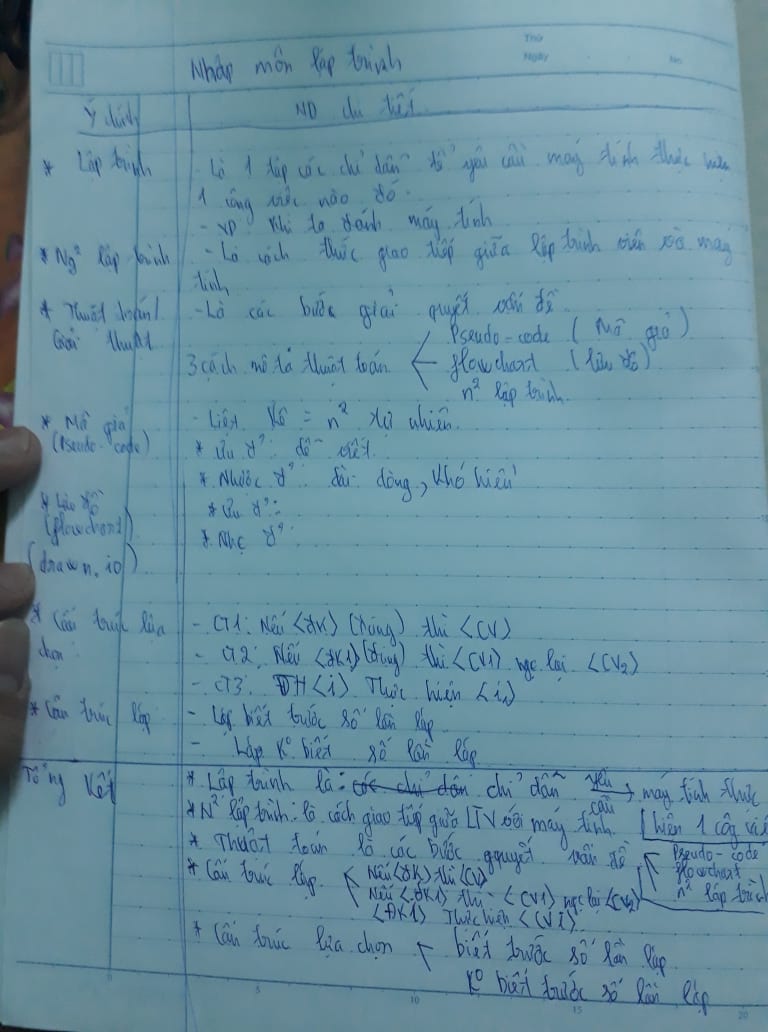 Thứ
Ngày No
Nhập môn lập trình
Ý chính ND chi tiết
* Lập trình - Là 1 tập các chỉ dẫn để yêu cầu máy tính thực hiện
1 công việc nào đó.
- VD khi ta đánh máy tính
* Ng² lập trình - Là cách thức giao tiếp giữa lập trình viên và máy
tính
* Thuật toán/ - Là các bước giải quyết vấn đề
Giải thuật
Pseudo-code (Mô giả)
3 cách mô tả thuật toán flowchart (lưu đồ)
n² lập trình.
* Mô giả - Liệt kê = n² tự nhiên.
(Pseudo-code) * Ưu đ²: dễ viết.
* Nhược đ²: dài dòng, khó hiểu
* Lưu đồ * Ưu đ²:
(flowchart) * Nhc đ²:
(drawn.io)
* Cấu trúc lựa - CT1: Nếu <ĐK> (đúng) thì <CV>
chọn - CT2: Nếu <ĐK1> (đúng) thì <CV1> ngc lại <CV2>
- CT3: ĐH <i> Thực hiện <i>
* Cấu trúc lặp - Lặp biết trước số lần lặp
- Lặp k° biết số lần lặp
Tổng kết * Lập trình là: các chỉ dẫn chỉ dẫn yêu cầu → máy tính thực
hiện 1 côg việc
* N² lập trình: là cách giao tiếp giữa LTV với máy tính
* Thuật toán là các bước gquyết vấn đề Pseudo-code
flowchart
n² lập trình
* Cấu trúc lặp Nếu <ĐK> thì <CV>
Nếu <ĐK1> thì <CV1> ngc lại <CV2>
<ĐK1> Thực hiện <CV I>
* Cấu trúc lựa chọn biết trước số lần lặp
K° biết trước số lần lặp
5 10 15 20